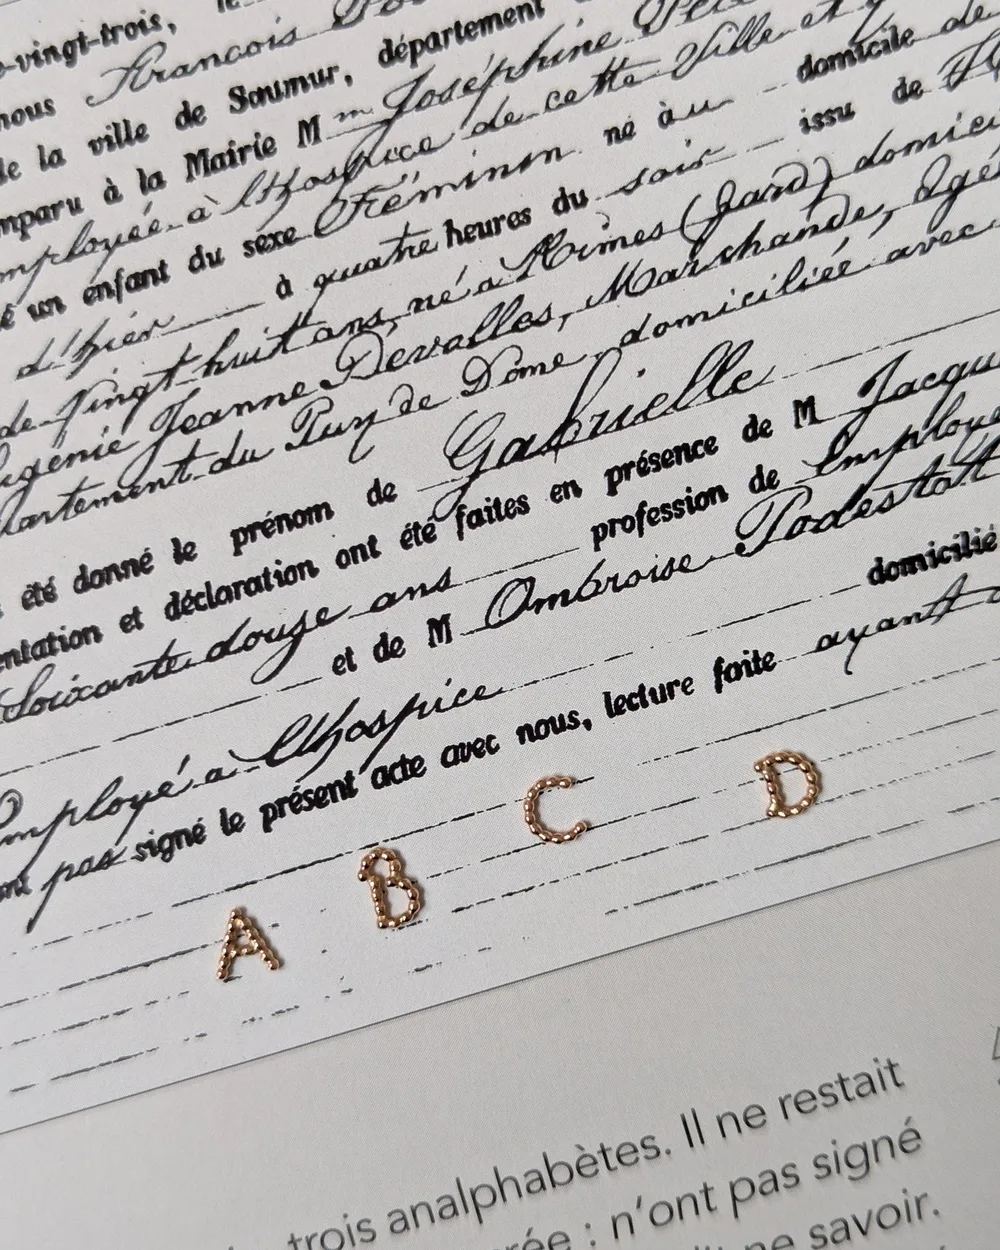 -vingt-trois, le
nous François
de la ville de Saumur, département
mparu à la Mairie M me Joséphine
mployée à l'Hospice de cette Ville et
un enfant du sexe Féminin né à u domicile de
d'hier à quatre heures du soir issu de
de Vingt huit ans, né à Nimes (Gard) domici
ugénie Jeanne Devalles, Marchande, âgé
artement du Puy de Dôme domiciliée avec
été donné le prénom de Gabrielle
entation et déclaration ont été faites en présence de M Jacqu
Soixante douze ans profession de Employé
et de M Ambroise Podestat
mployé à l'hospice domicilié
ont pas signé le présent acte avec nous, lecture faite ayant
A B C D
trois analphabètes. Il ne restait
rée : n'ont pas signé
ne savoir.